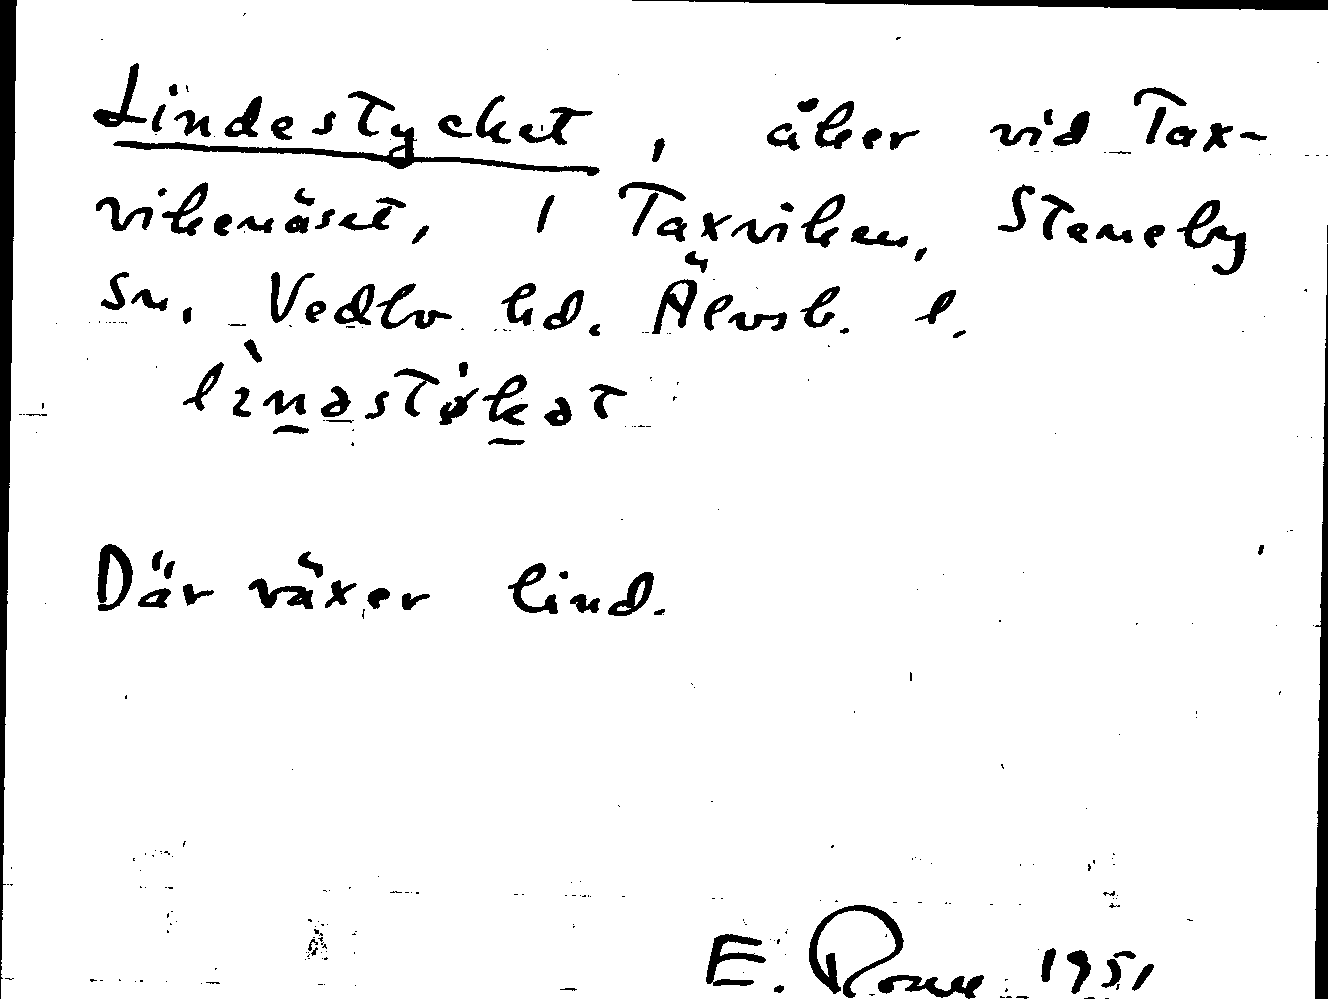 Lindestycket, åker vid Tax-
vikenäset, 1 Taxviken, Steneby
sn. Vedbo hd. Älvsb. l.
lìn̲əstø̍k̲ət
Där växer lind.
E. 1951